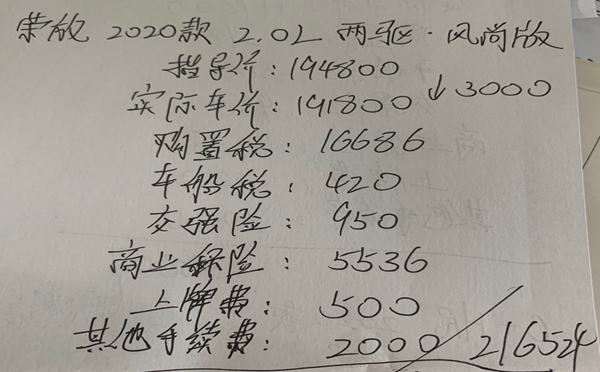 荣放 2020款 2.0L 两驱·风尚版
指导价:194800
↓3000
实际车价:191800
购置税:16686
车船税:420
交强险:950
商业保险:5536
上牌费:500
其他手续费:2000/216524